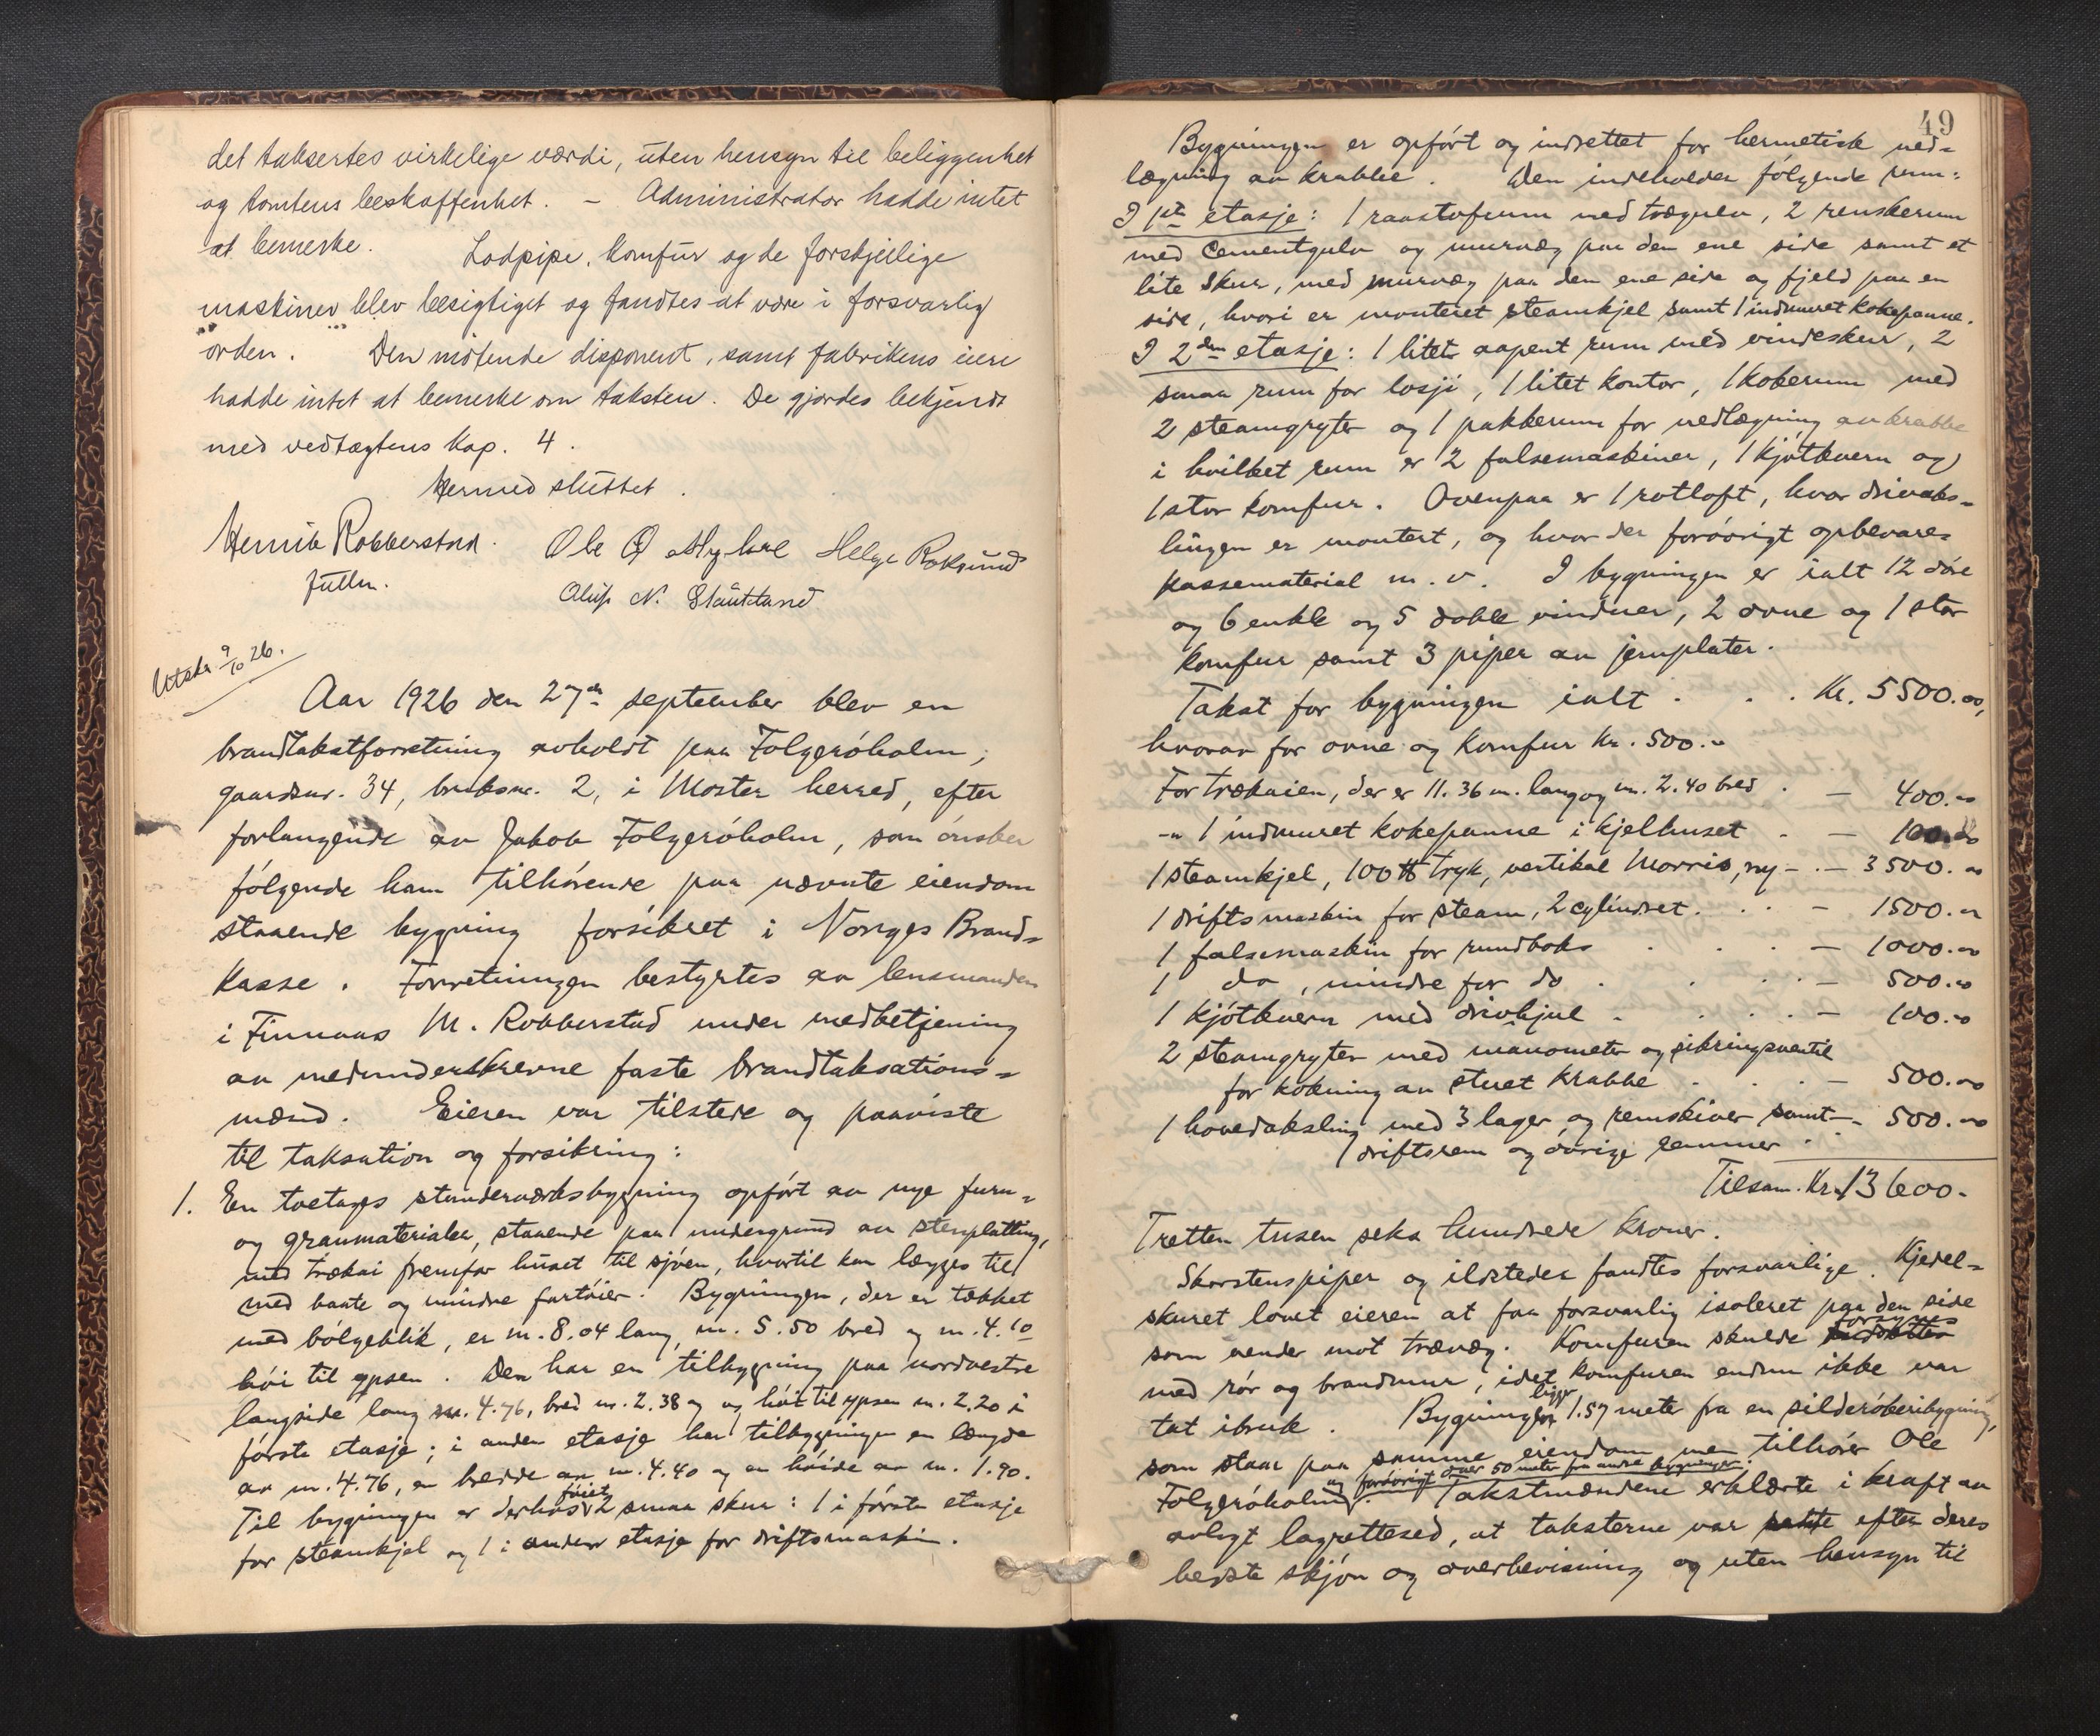 det taksertes virkelige værdi, uten hensyn til beliggenhet
og tomtens beskaffenhet. – Administrator hadde intet
at bemerke. Lodpipe, komfur og de forskjellige
maskiner blev besigtiget og fandtes at være i forsvarlig
orden. Den møtende disponent, samt fabrikens eiere
hadde intet at bemerke om taksten. De gjordes bekjendt
med vedtægtens Kap. 4.
Hermed sluttet.
Henrik Robberstad. Ole O Helge Røksund
fullm. N.
Utskr 9/10 26.
Aar 1926 den 27de september blev en
brandtakstforretning avholdt paa Folgerøholm,
gaardsnr. 34, bruksnr. 2, i Moster herred, efter
forlangende av Jakob Folgerøholm, som ønsker
følgende ham tilhørende paa nævnte eiendom
staaende bygning forsikret i Norges Brand-
kasse. Forretningen bestyrtes av lensmanden
i Finnaas M. Robberstad under medbetjening
av medunderskrevne faste brandtaksations-
mænd. Eieren var tilstede og paaviste
til taksation og forsikring:
1. En toetages stenderværksbygning opført av nye furu-
og granmaterialer, staaende paa undergrund av stenplatting,
med trækai fremfor huset til sjøen, hvortil kan lægges til
med baate og mindre fartøier. Bygningen, der er tækket
med bølgeblik, er m. 8.04 lang, m. 5.50 bred og m. 4.10
høi til gpsen. Den har en tilbygning paa nordvestre
langside lang m. 4.76, bred m. 2.38 og og høi til gpsen m. 2.20 i
første etasje; i anden etasje har tilbygningen en længde
av m. 4.76, en bredde av m. 4.40 og en høide av m. 1.90.
Til bygningen er derhos føiet 2 smaa skur: 1 i første etasje
for steamkjel og 1 i anden etasje for driftsmaskin.
49
Bygningen er opført og indrettet for hermetisk ned-
lægning av krabbe. Den indeholder følgende rum:
I 1ste etasje: 1 raastofrum med trægulv, 2 renskerum
med Cementgulv og murvæg paa den ene side samt et
lite Skur, med murvæg paa den ene side og fjeld paa en
side, hvori er monteret steamkjel samt 1 indmuret kokepanne.
I 2den etasje: 1 litet aapent rum med vindeskur, 2
smaa rum for losji, 1 litet kontor, 1 kokerum med
2 steamgryter og 1 pakkerum for nedlægning av krabbe
i hvilket rum er 2 falsemaskiner, 1 kjøtkvern og
1 stor komfur. Ovenpaa er 1 rotloft, hvor drivaks-
lingen er montert, og hvor der forøvrigt opbevares
kassemateriel m. v. I bygningen er ialt 12 døre
og 6 enkle og 5 doble vinduer, 2 ovne og 1 stor
komfur samt 3 piper av jernplater.
Takst for bygningen ialt . . . Kr. 5500.00,
hvorav for ovne og komfur Kr. 500.-
For trækaien, der er 11.36 m. lang og m. 2.40 bred . — 400.00
-"- 1 indmuret kokepanne i kjelhuset . — 100.00
1 steamkjel, 100 ℔ tryk, vertikal Morris, ny - . — 3500.00
1 driftsmaskin for steam, 2 cylindret. . . — 1500.00
1 falsemaskin for rundboks . . . — 1000.00
1 do , mindre for do . . . . — 500.00
1 kjøtkvern med drivhjul . . . . — 100.00
2 steamgryter med manometer og sikringsventil
for kokning av stuet krabbe . . . — 500.00
1 hovedaksling med 3 lager og remskiver samt — 500.00
driftsrem og øvrige remmer . .
Tilsam. Kr. 13600.-
Tretten tusen seks hundrede kroner.
Skorstenspiper og ildsteder fandtes forsvarlige. Kjedel-
skuret lovet eieren at faa forsvarlig isoleret paa den side
som vender mot trævæg. Komfuren skulde forsynes
med rør og brandmur, idet komfuren endnu ikke var
tat ibruk. Bygningen ligger 1.57 meter fra en silderøkeribygning,
som staar paa samme eiendom, men tilhører Ole
Folgerøholm og forøvrigt over 50 meter fra andre bygninger. Takstmændene erklærte i kraft av
avlagt lagrettesed, at taksterne var satte efter deres
bedste skjøn og overbevisning og uten hensyn til